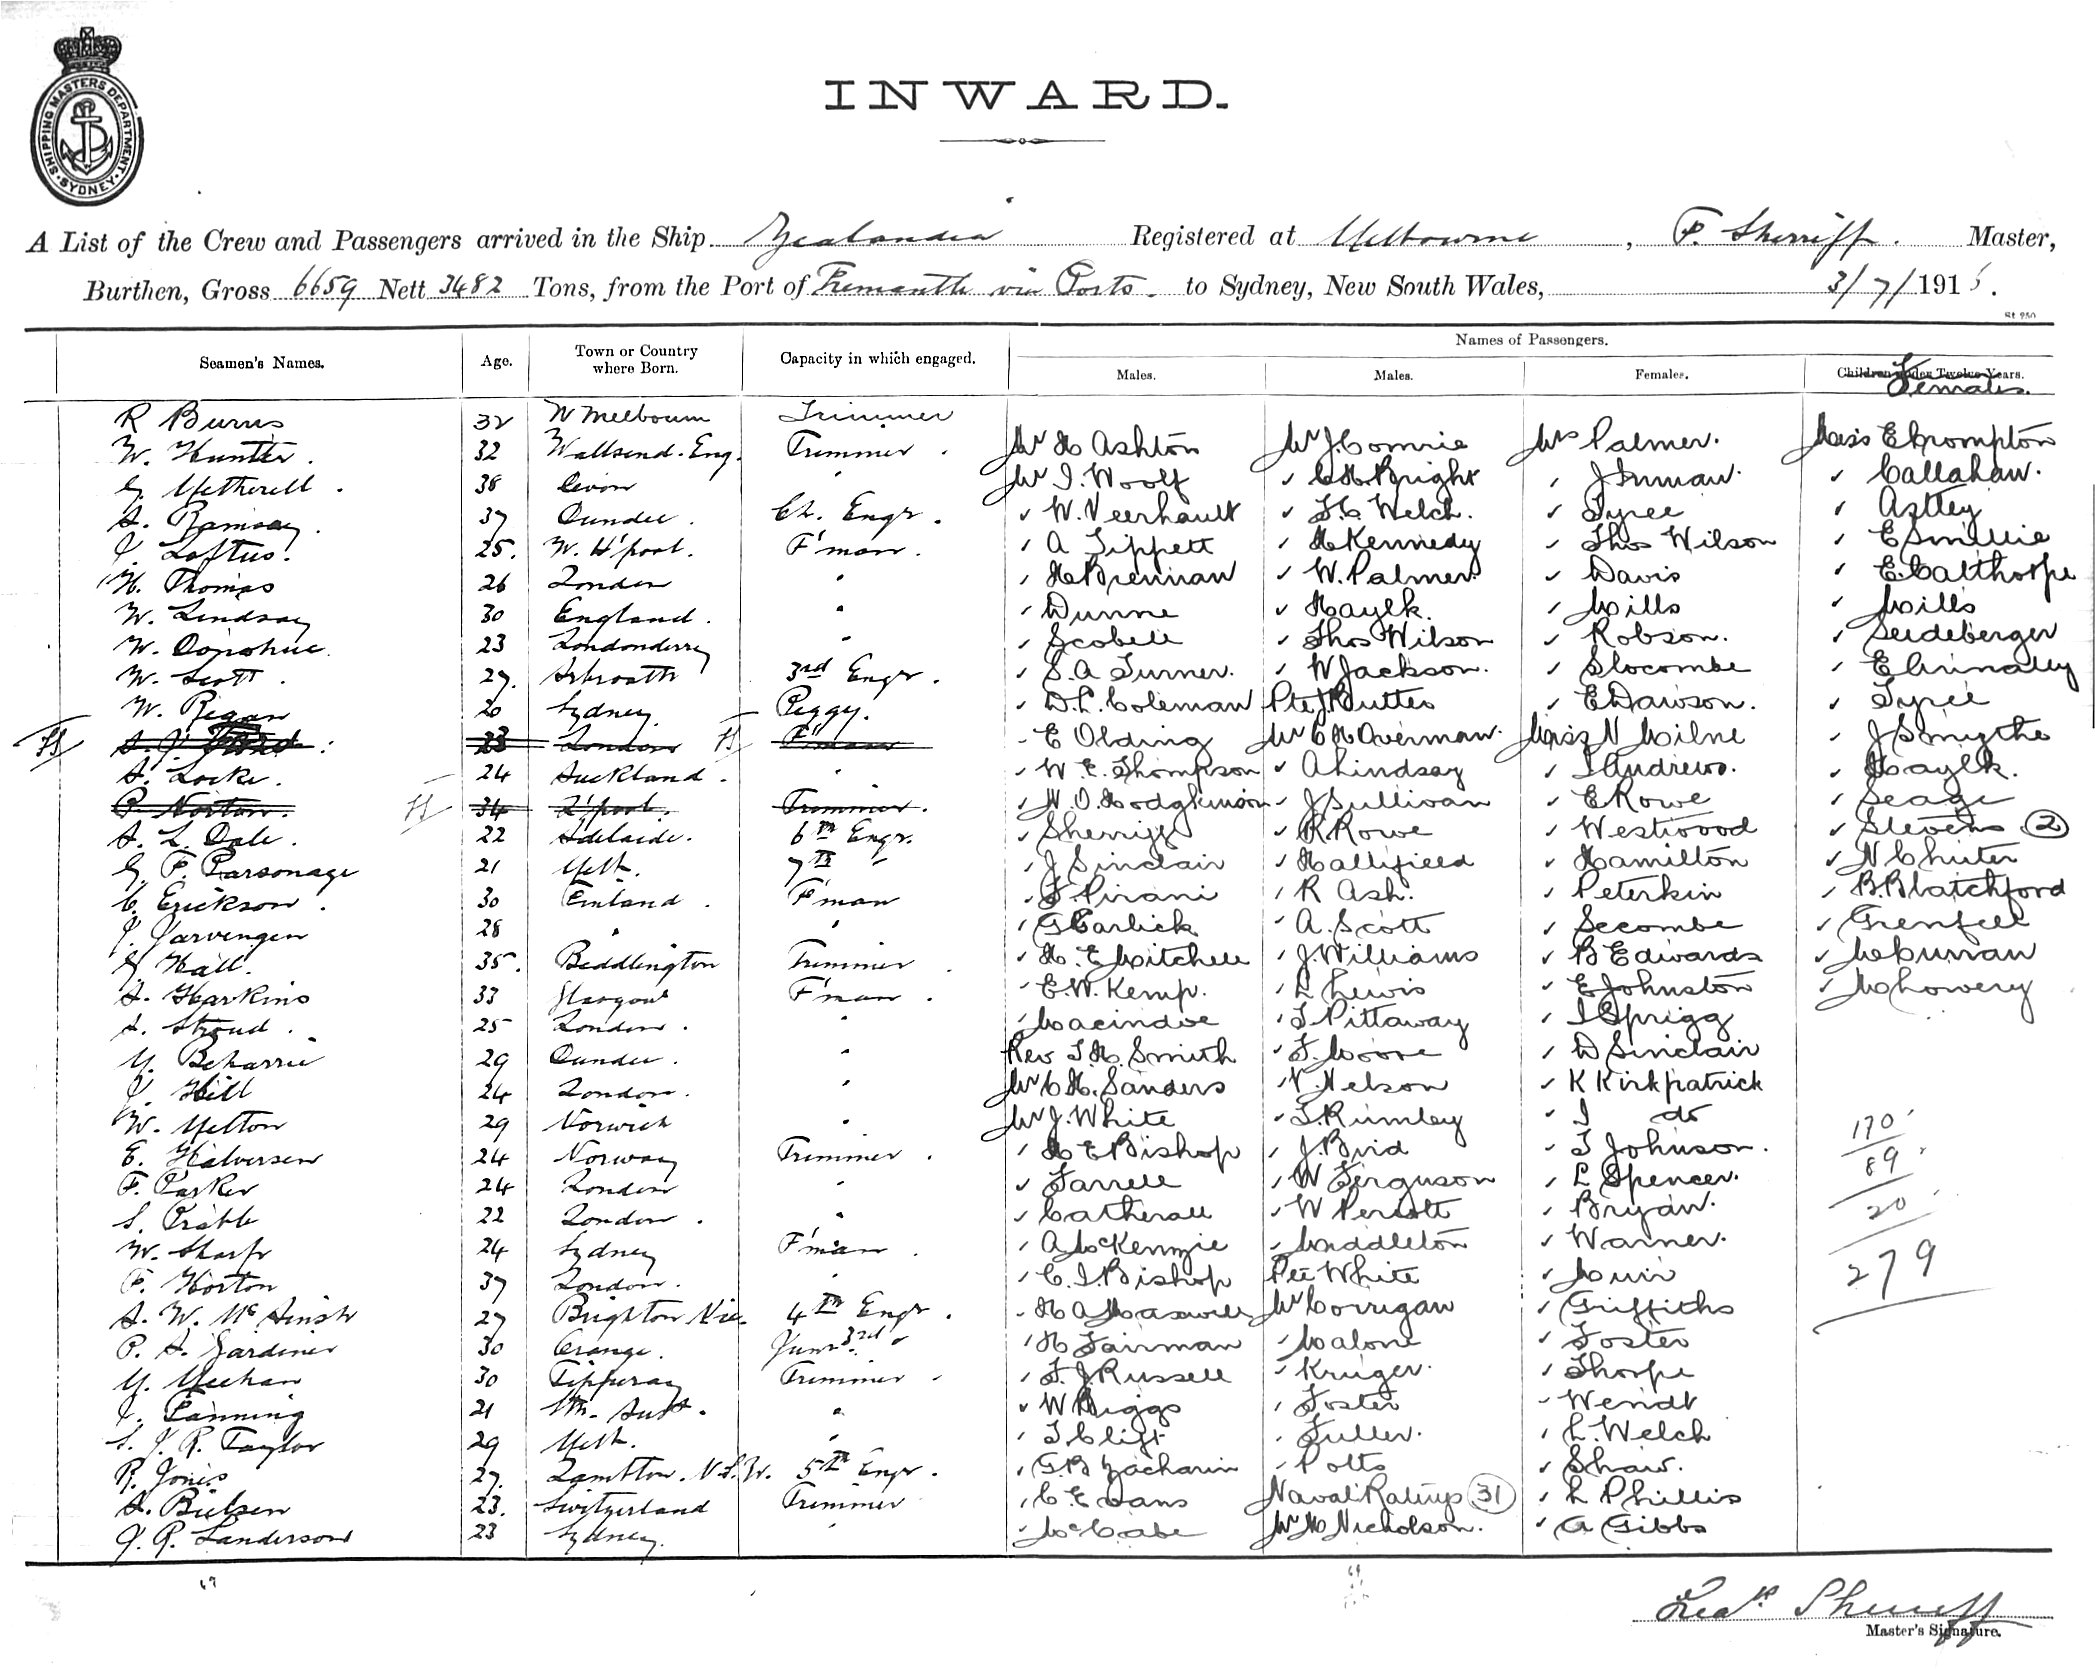 SHIPPING MASTERS DEPARTMENT
SYDNEY
INWARD.
A List of the Crew and Passengers arrived in the Ship Zealandia Registered at Melbourne, F. Sherriff. Master,
Burthen, Gross 6659 Nett 3482 Tons, from the Port of Fremantle via Ports. to Sydney, New South Wales, 3/7/1915.
St 250
Seamen's Names. Age. Town or Country where Born. Capacity in which engaged. Names of Passengers.
Males. Males. Females. Children under Twelve Years. Females.
R Burns 32 N Melbourn Trimmer
W. Hunter. 32 Wallsend. Eng. Trimmer. Mr H Ashton Mr J Comrie Mrs Palmer. Miss E Crompton
G. Metherell. 38 Devon " Mr I. Woolf C H Bright J Inman. Callahan.
A. Ramsay. 37 Dundee. Ch. Engr. W. Veerhault F C Welch. Tyree Astley
J. Loftus. 25. W. H'pool. F'man. A Tippett H Kennedy Thos Wilson E Smillie
H. Thomas 26 London " H Brennan W. Palmer. Davis E. Calthorpe
W. Lindsay 30 England. " Dunne Haylk. Mills Mills
W. Donohue 23 Londonderry " Scobell Thos Wilson Robson. Seideberger
W. Scott. 27. Arbroath 3rd Engr. S. A Turner. W Jackson. Slocombe
W. Regan 20 Sydney. Peggy. D. L. Coleman Pte J Buttes E Dawson. Tyree
23 London F'man E Olding Mr C H Overman. Miss N Milne J Smythe
A. Locke. 24 Auckland. " W. E. Thompson A Lindsay I Andrews. Haylk.
P. Norton. 34 L'pool. Trimmer. W. O. Hodgkinson J Sullivan E Rowe Seage
A. L. Dale. 22 Adelaide. 6th Engr. Sherriff R Rowe Westwood Stevens (2)
G. F. Parsonage 21 Melb. 7th " J Sinclair Hallifield Hamilton N Chuter
C. Erickson. 30 Finland. F'man F. Pirani R Ash. Peterkin B. Blatchford
J. Jarvengen 28 " " G Carlick A. Scott Secombe Grenfell
G. Hall. 35. Beddlington Trimmer. H. E Mitchell J. Williams B Edwards McCurran
A. Harkins 33 Glasgow F'man. E. W. Kemp. L Lewis E Johnston McLowery
A. Stroud. 25 London. " Macindoe T Pittaway I Sprigg
M. Beharrie 29 Dundee. " Rev T. H. Smith F. Moore D Sinclair
J. Hill 24 London. " Mr C H. Sanders V. Nelson K Kirkpatrick
W. Melton 29 Norwich " Mr J. White T. Rumley I do
E. Halversen 24 Norway Trimmer. H E Bishop J. Bird T Johnson. 170
F. Parker 24 London " Farrell W Ferguson L Spencer. 89
S. Prable 22 London. " Catherall W Perrott Bryan. 20
W. Sharp 24 Sydney F'man. A McKenzie Middleton Warner. 279
F. Horton 37 London. " C. I. Bishop Pte White Muir
A. W. McAinsh 27 Brighton Vic. 4th Engr. H A Maxwell Mr Corrigan Griffiths
P. A. Gardiner 30 Orange. Junr 3rd " H Fairman Malone Foster
M. Meehan 30 Tipperary Trimmer F. J. Russell Kruger. Thorpe
J. Fanning 21 Sth. Aust. " W Briggs Foster Wendt
S. J. R. Taylor 29 Melb. " T Clift Fuller. L. Welch
R. Jones 27. Lambton. N.S.W. 5th Engr. G. B Zacharin Potts Shaw.
A. Bielsen 23. Switzerland Trimmer C. Evans Naval Ratings (31) L Phillis
J. R. Sanderson 23 Sydney. " McCabe Mr H Nicholson. A Gibbs
Fredk Sherriff
Master's Signature.